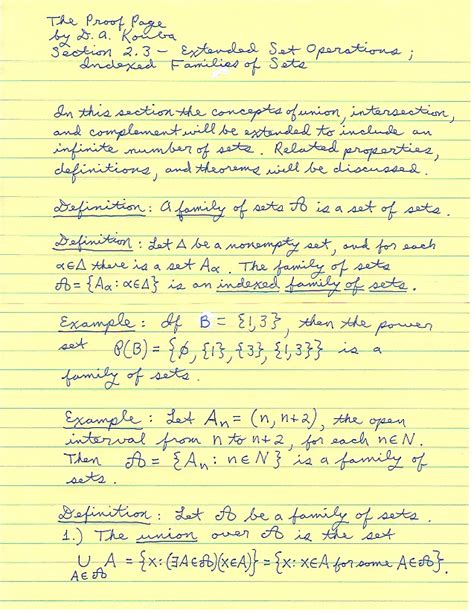 The Proof Page
by D. A. Kouba
Section 2.3 – Extended Set Operations ;
Indexed Families of Sets
In this section the concepts of union, intersection,
and complement will be extended to include an
infinite number of sets. Related properties,
definitions, and theorems will be discussed.
Definition : A family of sets 𝒜 is a set of sets.
Definition : Let Δ be a nonempty set, and for each
α∈Δ there is a set Aα. The family of sets
𝒜 = {Aα : α∈Δ} is an indexed family of sets.
Example : If B = {1,3}, then the power
set 𝒫(B) = {∅, {1}, {3}, {1,3}} is a
family of sets.
Example : Let An = (n, n+2), the open
interval from n to n+2, for each n∈N.
Then 𝒜 = {An : n∈N} is a family of
sets.
Definition : Let 𝒜 be a family of sets.
1.) The union over 𝒜 is the set
∪ A = {x : (∃A∈𝒜)(x∈A)} = {x : x∈A for some A∈𝒜}.
A∈𝒜